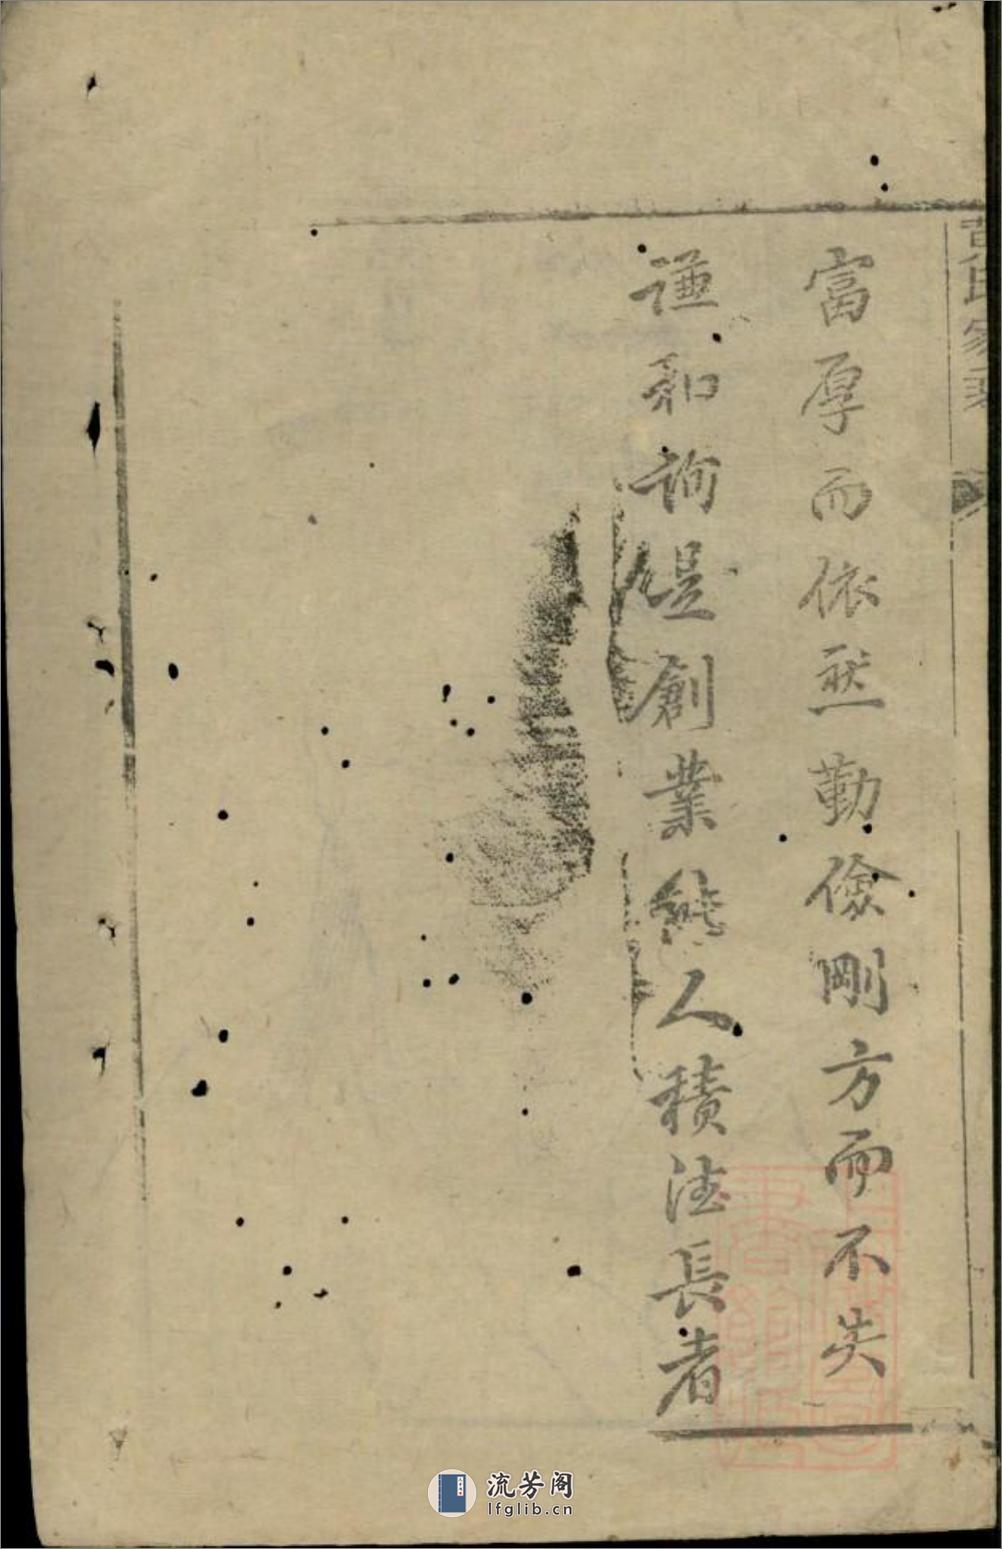 富厚而依然勤儉剛方而不失
謙和詢是創業能人積德長者
氏家乘
流芳阁
lfglib.cn